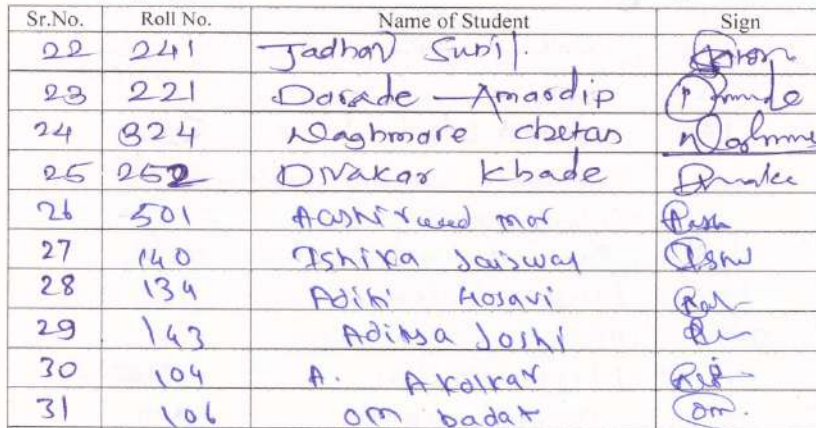 Sr.No. Roll No. Name of Student Sign
22 241 Jadhav Sunil.
23 221 Darade - Amardip
24 324 Waghmare chetan
25 252 Divakar Khade
26 501 Aashirwad mor
27 140 Ishika Jaiswal
28 134 Aditi Gosavi
29 143 Aditya Joshi
30 104 A. Akolkar
31 106 om badar om.